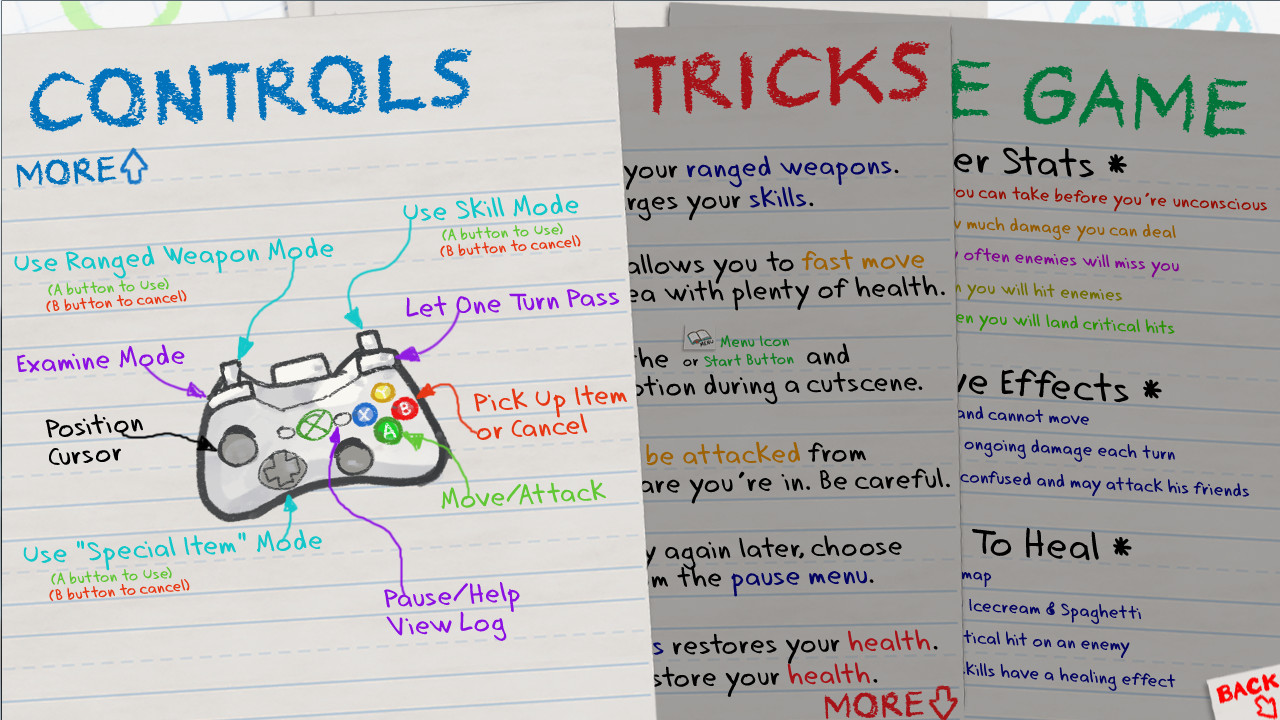 CONTROLS
MORE
Use Skill Mode
(A button to Use)
(B button to cancel)
Use Ranged Weapon Mode
(A button to Use)
(B button to cancel)
Let One Turn Pass
Examine Mode
Pick Up Item
or Cancel
Position
Cursor
Y
X
B
A
Move/Attack
Use "Special Item" Mode
(A button to Use)
(B button to cancel)
Pause/Help
View Log
TRICKS
your ranged weapons.
rges your skills.
allows you to fast move
ea with plenty of health.
the MENU or Menu Icon Start Button and
otion during a cutscene.
be attacked from
are you're in. Be careful.
y again later, choose
m the pause menu.
s restores your health.
store your health.
MORE
E GAME
er Stats *
ou can take before you're unconscious
w much damage you can deal
often enemies will miss you
n you will hit enemies
en you will land critical hits
ve Effects *
and cannot move
ongoing damage each turn
confused and may attack his friends
To Heal *
map
Icecream & Spaghetti
tical hit on an enemy
kills have a healing effect
BACK